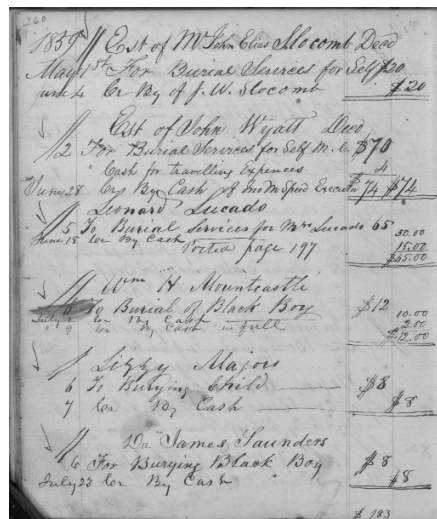 260
1859 // Est of Mr John Elias Slocomb Decd
May 1st For Burial Services for Self $20
June 4 Cr By of J. W. Slocomb $20
// Est of John Wyatt Decd
2 For Burial Services for Self M. C. $70
Cash for travelling Expences 4
June 28 Cr By Cash of Jno M Speed Executor $74 $74
// Leonard Lucado
5 To Burial Services for Mrs Lucado 65 50.00
June 15 Cr By Cash 15.00
Posted page 197 $65.00
// Wm H Mountcastle
6 To Burial of Black Boy $12 10.00
July Cr By Cash 2.00
" 9 Cr By Cash in full $12.00
// Lizzy Majors
6 To Burying Child $8
7 Cr By Cash $8
// Dr James Saunders
6 For Burying Black Boy $8
July 23 Cr By Cash $8
$183